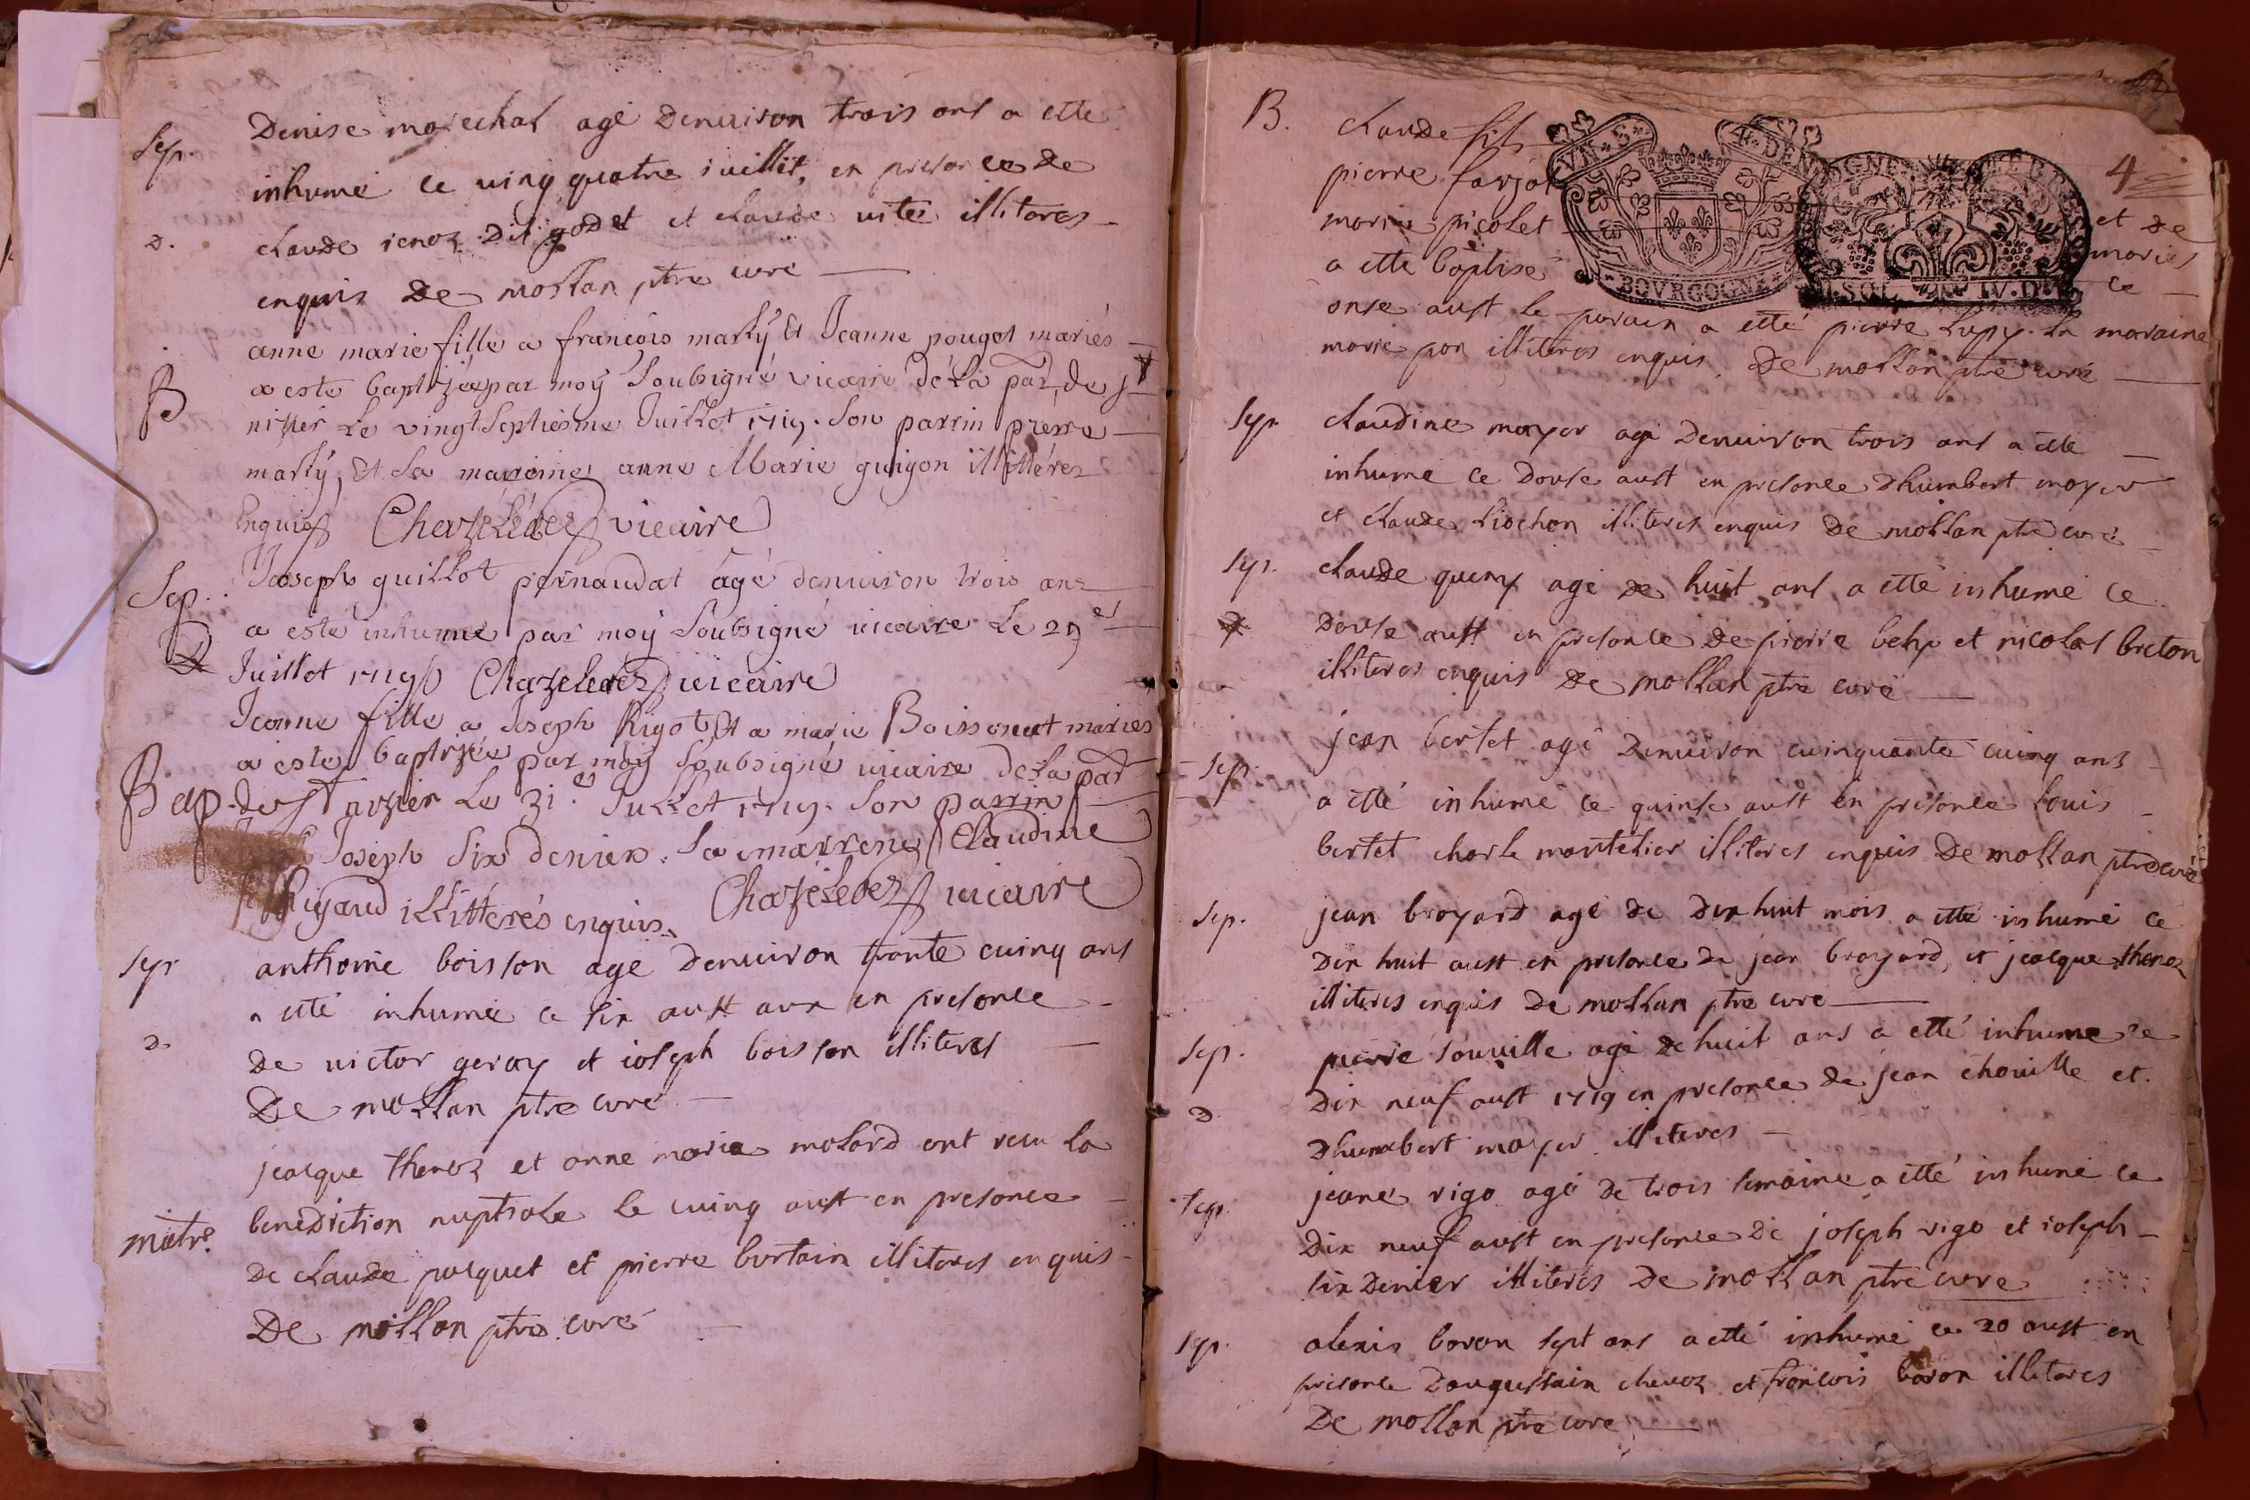 Sep. Denise marechal agé denuiron trois ans a etté
inhumé ce uing quatre iuillet, en presance de
D. claude ienoz dit godet et claude uite illiteres
enquis De mollan ptre curé
anne marie fille a francois marty et Jeanne pouget mariés
B a esté baptizée par moy Soubsigné vicaire de la par, de st
nizier Le vingt septiesme Juillet 1719. Son parrin pierre
marty, et sa mareine anne Marie guigon illitteres
Enquis Chazeledes vicaire
Sep. Joseph guillot pernaudat âgé denuiron trois ans
a esté inhumé par moy Soubsigné uicaire Le 29e
D Juillet 1719 Chazeledes uicaire
Jeanne fille a Joseph Rigot et a marie Boissonat mariés
a esté baptizée par moy Soubsigné uicaire de la par
Bap. de st nizier Le 31.e Juillet 1719. Son parrin
Joseph Six denier. Sa marrene Claudine
Rigaud illitterés enquis. Chazeledes uicaire
Sep anthoine boisson agé denuiron trante cuinq ans
a etté inhumé ce six aust en presance
D. de uictor geray et ioseph boisson illiteres
De mollan ptre curé
jacque thenoz et anne marie molard ont recu la
matr. benediction nuptiale le cuinq aust en presance
de claude pasquet et pierre bertain illiteres enquis
De mollan ptre curé
B. claude fils
4
pierre farjot et de
marie picolet mariés
a etté baptisé ce
VN. S. 4. DEN.
BOVRGOGNE
onse aust le parain a etté pierre Lupy. la maraine
marie pon illiteres enquis. De mollan ptre curé
Sep. claudine mayer agé denuiron trois ans a etté
inhumé ce douse aust en presance dhumbert mayer
et claude Liochon illiteres enquis De mollan ptre curé
Sep. claude quemy agé de huit ans a etté inhumé ce
douse aust en presance de pierre et nicolas breton
illiteres enquis De mollan ptre curé
jean bertet agé denuiron cuinquante cuinq ans
Sep. a etté inhumé ce quinse aust en presance louis
bertet charle montelier illiteres enquis De mollan ptre curé
Sep. jean broyard agé de dix huit mois a etté inhumé ce
dix huit aust en presance de jean broyard, et jacque thenoz
illiteres enquis De mollan ptre curé
Sep. pierre souuille agé de huit ans a etté inhumé ce
D. dix neuf aust 1719 en presance de jean chouille et
dhumbert mayer illiteres
Sep. jeane rigo agé de trois semaine a etté inhumé ce
dix neuf aust en presance de joseph rigo et ioseph
six denier illiteres De mollan ptre curé
Sep. alexis baron sept ans a etté inhumé ce 20 aust en
presance daugustain chenoz et francois baron illiteres
De mollan ptre curé